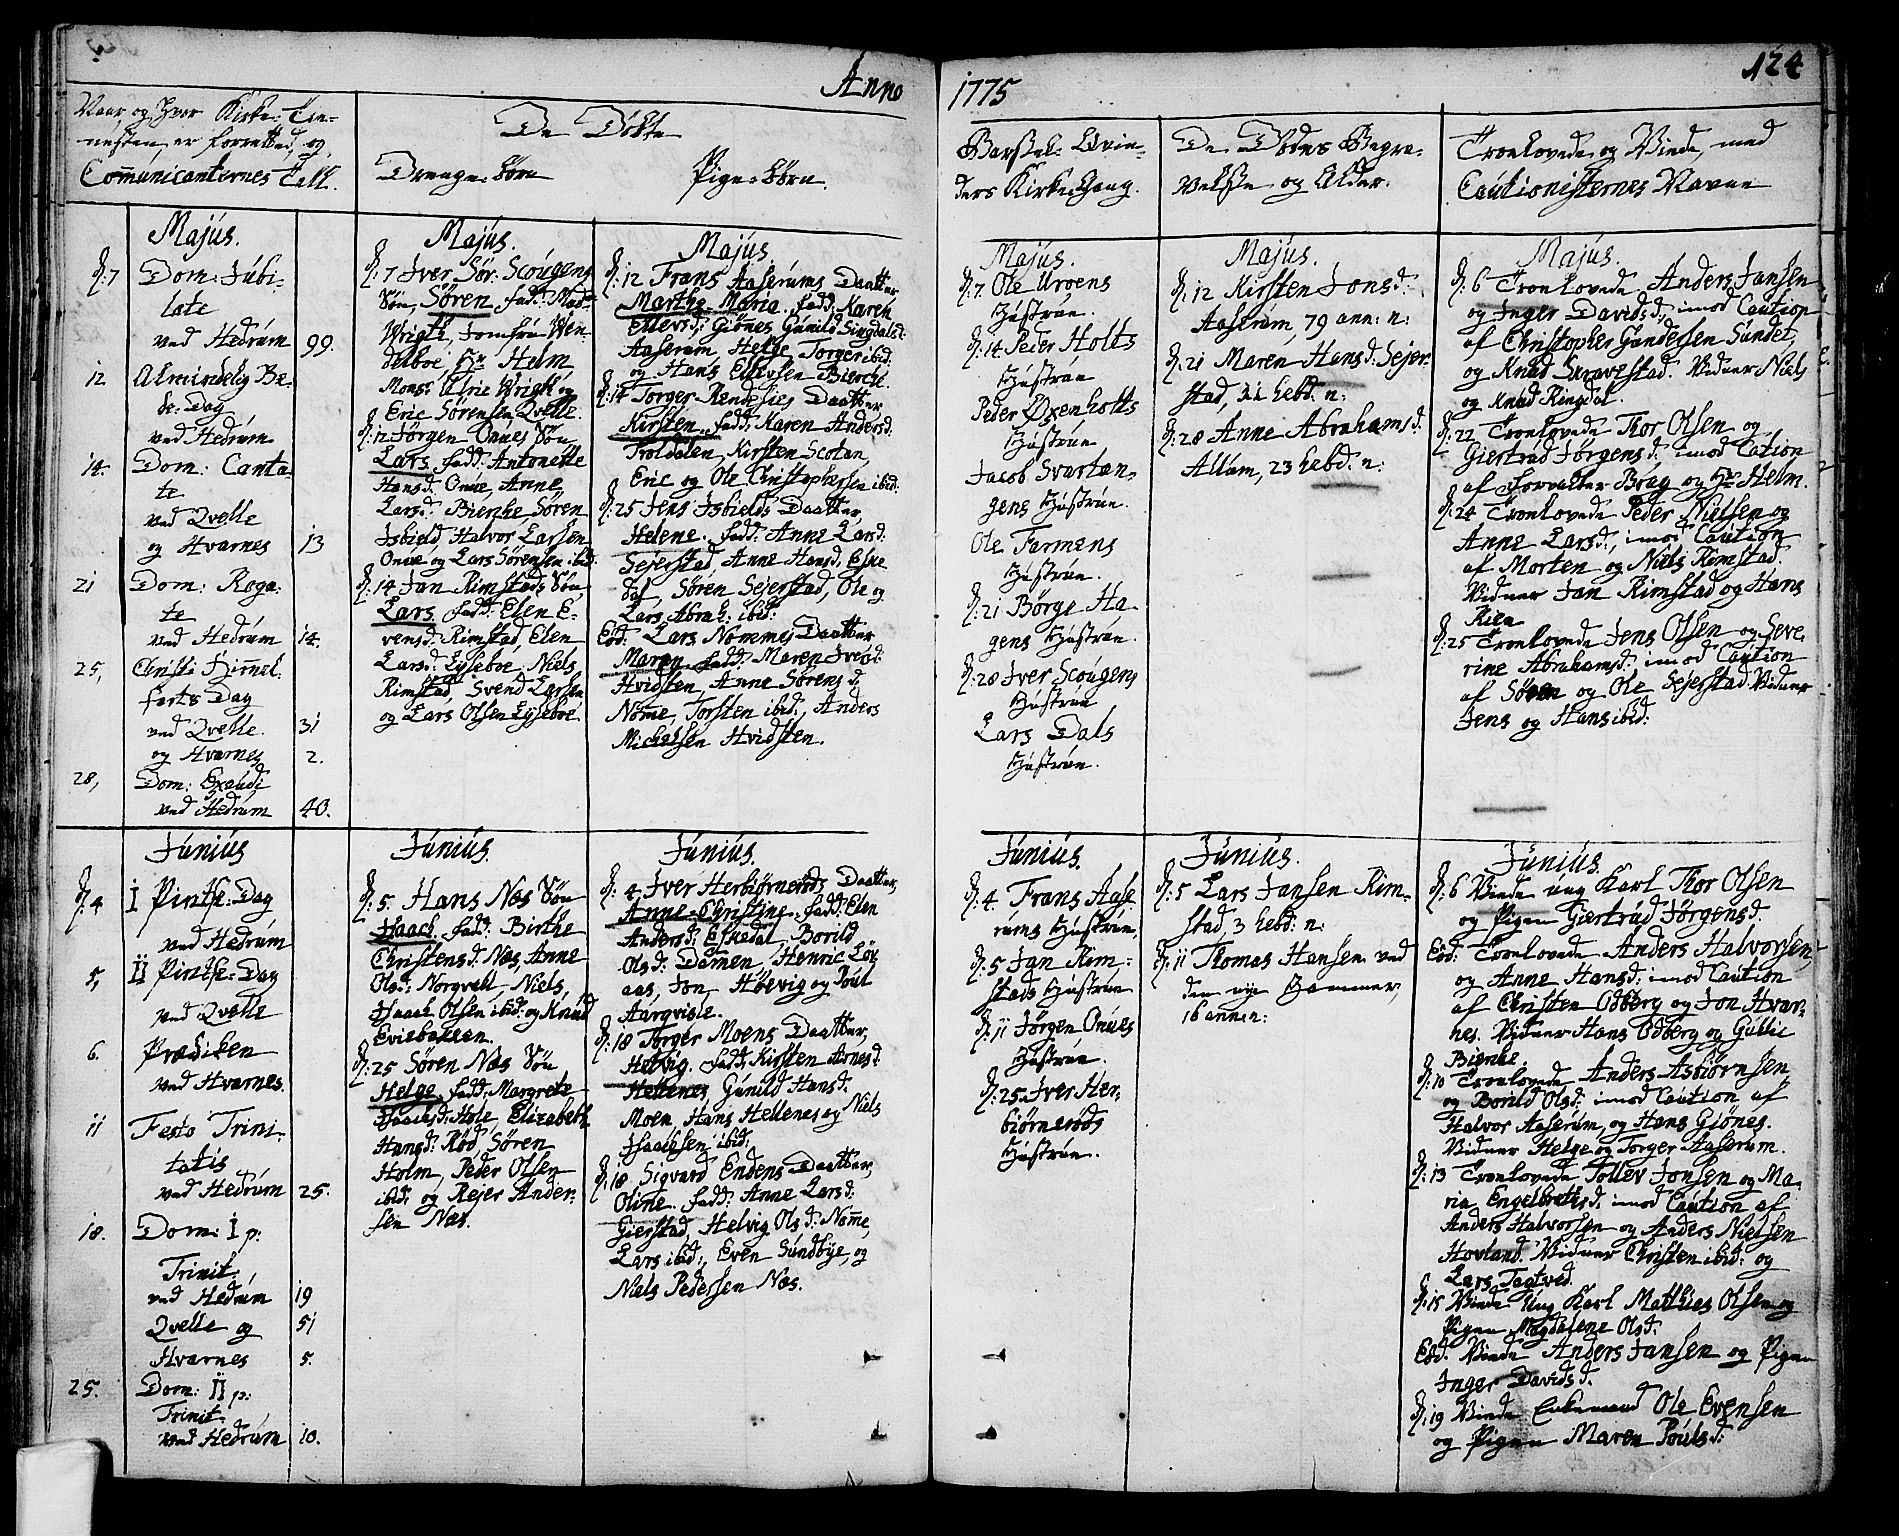 Anno 1775
124
Naar og hvor Kirke-Tie-
nesten er forretted, og
Communicanternes Tall.
De Døbte
Drenge-Børn
Pige-Børn.
Barsel-Qvin-
ders Kirke-Gang.
De Dødes Begra-
velse og Alder.
Troelovede og Viede, med
Cautionisternes Navne
Majus.
d: 7 Dom: Jubi-
late
ved Hedrum 99.
12 Almindelig Be-
de-Dag
ved Hedrum
14. Dom: Canta-
te
ved Qvelle
og Hvarnes 13
21 Dom: Roga-
te
ved Hedrum 14.
25, Christi Himmel-
farts Dag
ved Qvelle 31
og Hvarnes 2.
28, Dom: Exaudi
ved Hedrum 40.
Majus.
d: 7 Iver Sør: Scougens
Søn, Søren fadd: Mad:
Wrigt, Jomfru Wen-
delboe, Hr Helm,
Mons: Ulric Wrigt og
Eric Sørensen Qvelle.
d: 12 Jørgen Onnes Søn
Lars fadd: Antonette
Hansd: Onne, Anne
Larsd: Bienke Søren
Isbield Halvor Larsen
Onne og Lars Sørensen ibid:
d: 14 Jan Rimstads Søn
Lars fadd: Elen E-
vensd: Rimstad, Elen
Larsd: Lyseboe, Niels
Rimstad, Svend Larsen
og Lars Olsen Lyseboe.
Majus.
d: 12 Frans Aaserums Daatter
Marthe Maria, fadd: Karen
Ellevsd: Giønes Gunild Sirgdalsd:
Aaserum, Helge, Torger ibid:
og Hans Ellevsen Bierche.
d: 14 Torger Rendelies Daatter
Kirsten, fadd: Karen Andersd:
Troldalen, Kirsten Scotan,
Eric og Ole Christophersen ibid:
d: 25 Jens Isbields Daatter
Helene. fadd: Anne Larsd:
Sejerstad, Anne Hansd: Eske
dal, Søren Sejerstad, Ole og
Lars Abrah: ibid:
Eod: Lars Nommes Daatter
Maren fadd: Maren Iversd:
Hvidsten, Anne Sørensd:
Nome, Torsten ibid:, Anders
Michelsen Hvidsten.
Majus.
d: 7. Ole Uroens
Hustrue.
d: 14 Peder Holts
Hustrue
Peder Øxenholts
Hustrue
Jacob Svartan-
gens Hustrue.
Ole Farmens
Hustrue.
d: 21 Børge Ha-
gens Hustrue.
d: 28 Iver Scougens
Hustrue
Lars Dals
Hustrue.
Majus.
d: 12 Kirsten Jonsd:
Aaserum, 79 ann: n:
d: 21 Maren Hansd: Sejer-
stad, 21 hebd: n:
d: 28 Anne Abrahamsd:
Allum, 23 hebd: n:
Majus.
d: 6 Troelovede Anders Jansen
og Inger Davidsd:, imod Caution
af Christopher Gundersen Sundet,
og Knud Skravestad. Vidner Niels
og Knud Ringdal.
d: 22 Troelovede Thor Olsen og
Giertrud Jørgensd: imod Cation
af Forvalter Brag og Hr Helm.
d: 24 Troelovede Peder Nielsen og
Anne Larsd:, imod Caution
af Morten og Niels Rimstad.
Vidner Jan Rimstad og Hans
Risa
d: 25 Troelovede Jens Olsen og Seve-
rine Abrahamsd: imod Caution
af Søren og Ole Sejerstad. Vidner
Jens og Hans ibid:
Junius
d: 4 I Pintse-Dag
ved Hedrum
5, II Pintse-Dag
ved Qvelle
6. Prædiken
ved Hvarnes.
11 Festo Trini-
tatis
ved Hedrum 25.
18. Dom: I p:
Trinit:
ved Hedrum 19
Qvelle og 51
Hvarnes 5.
25. Dom: II p:
Trinit:
ved Hedrum 10.
Junius.
d: 5. Hans Næs Søn
Isaach fadd: Birthe
Christensd: Næs, Anne
Olsd: Norgvell, Niels,
Isaach Olsen ibid: og Knud
Eviebakken.
d: 25 Søren Næs Søn
Helge, fadd: Margrete
Isaachsd: Hole, Elizabeth
Hansd: Rød Søren
Holm, Peder Olsen
ibid: og Rejer Ander-
sen Næs.
Junius.
d: 4 Iver Herbiørnerøds Daatter,
Anne-Christine. fadd: Elen
Andersd: Eskedal, Borild
Olsd: Damen, Henric Løv
aas, Jon Høevig og Poul
Aarqvisle.
d: 18 Torger Moens Daatter,
Helvig. fadd: Kirsten Arnesd:
Hellenes, Gunild Hansd:
Moen, Hans Hellenes og Niels
Isaachsen ibid:
d: 18, Sigvard Endens Daatter,
Oline. fadd: Anne Larsd:
Gierstad, Helvig Olsd: Nome,
Lars ibid:, Even Sundbye, og
Niels Pedersen Næs.
Junius.
d: 4. Frans Aase
rums Hustrue,
d: 5 Jan Rim-
stads Hustrue
d: 11 Jørgen Onnes
Hustrue.
d: 25 Iver Her-
biørnerøds
Hustrue.
Junius.
d: 5 Lars Jansen Rim-
stad, 3 hebd: n:
d: 11 Thomas Hansen ved
den nye Hammer,
16 ann: n:
Junius.
d: 6 Viede ung Karl Thor Olsen
og Pigen Giertrud Jørgensd:
Eod: Troelovede Anders Halvorsen,
og Anne Hansd: imod Caution
af Christen Odberg og Jon Hvar-
nes. Vidner Hans Odberg og Gullic
Bienke.
d: 10 Troelovede Anders Asbiørnsen
og Borild Olsd: imod Caution af
Halvor Aaserum, og Hans Giønes.
Vidner Helge og Torger Aaserum.
d: 13 Troelovede Tollev Jonsen og Ma-
ria Engelbretsd: imod Caution af
Anders Halvorsen og Anders Nielsen
Hovland. Vidner Christen ibid: og
Lars Tagtved.
d: 15 Viede Ung Karl Matthies Olsen og
Pigen Magdalene Olsd:
Eod. Viede Anders Jansen og Pigen
Inger Davidsd.
d: 19 Viede Enkemand Ole Evensen
og Pigen Maren Poulsd: